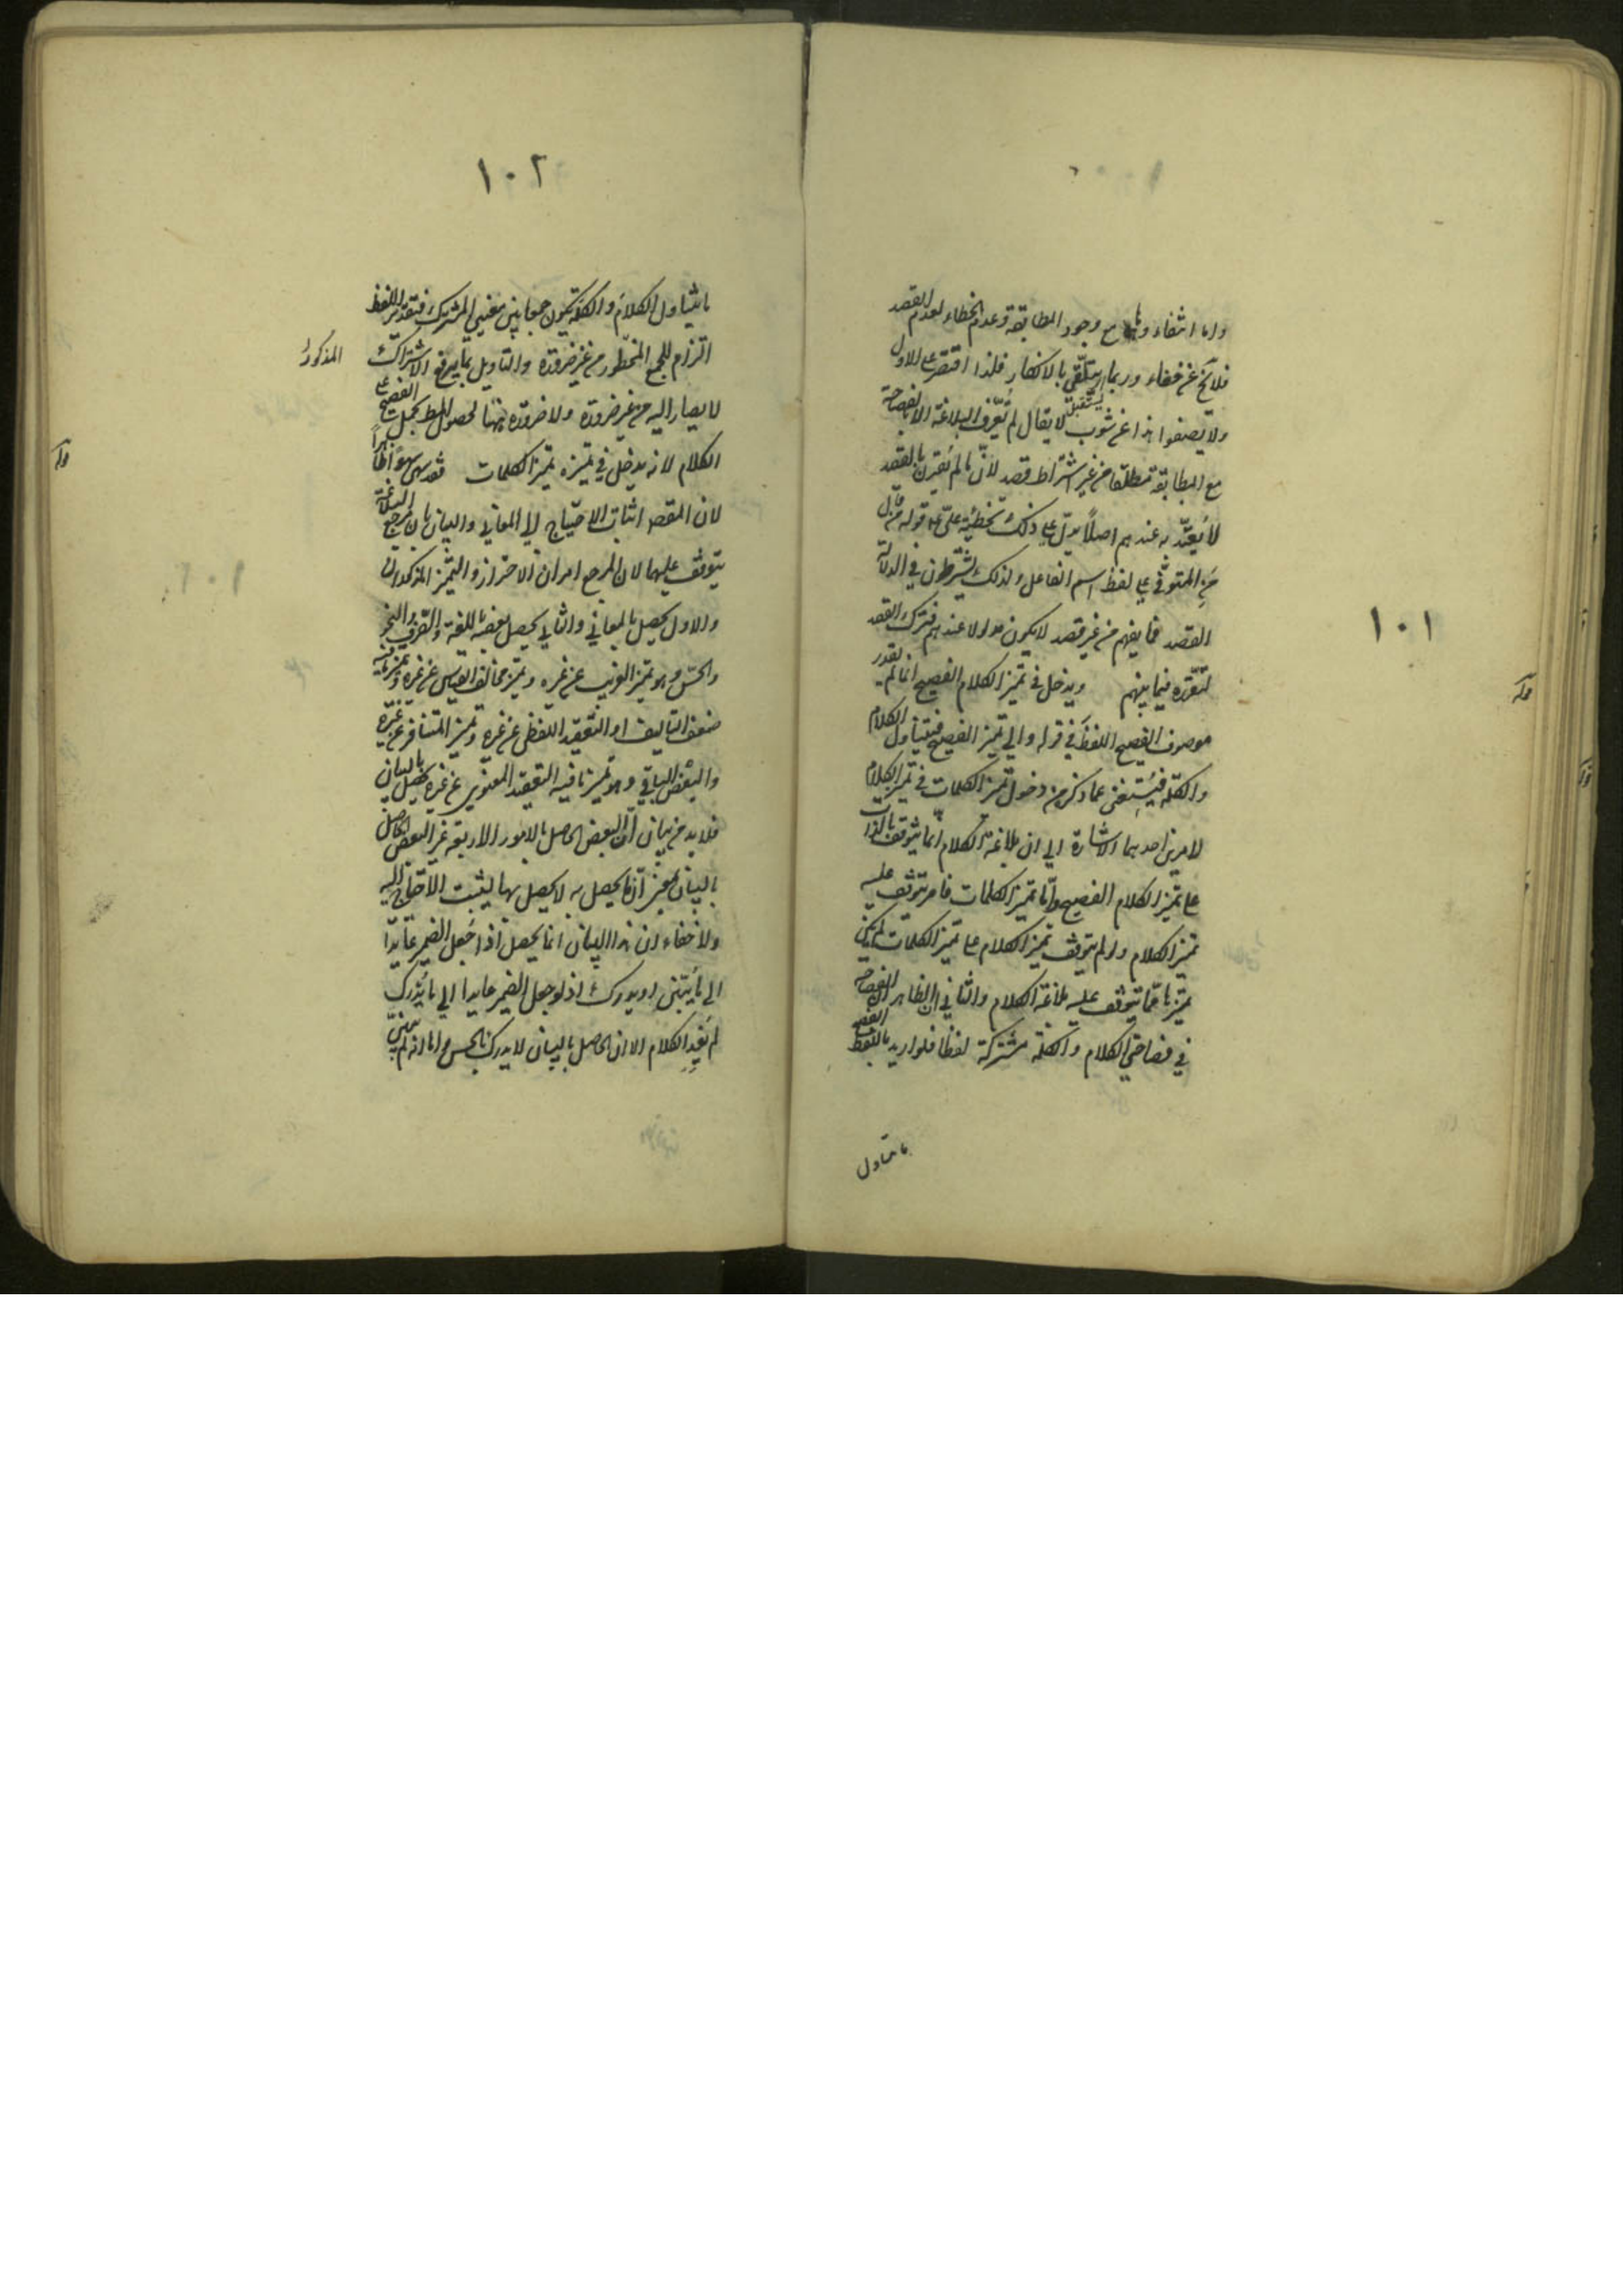 ١٠١
واما انتفاء وها مع وجود المطابقة وعدم الخطاء لعدم القصد
فلا يخ عن خفاء وربما يتلقى بالانكار فلذا اقتصر على الاول
ولا تصفوا هذا عن شوب لا يقال لم تعرف البلاغة الا بالفصاحة
مع المطابقة مطلقا من غير اشتراط قصد لان ما لم يقرن بالقصد
لا يعتد به عندهم اصلا يدل على ذلك تخطئة على قوله من قال
من المتوفي على لفظ اسم الفاعل ولذلك يشترطون في الدلالة
القصد فما يفهم من غير قصد لا يكون مدلولا عندهم فترك القصد
لتقرره فيما بينهم ويدخل في تميز الكلام الفصيح انما لم يقدر
موصوف الفصيح اللفظ في قوله والى تميز الفصيح فيتناول الكلام
والكلمة فيستغنى عما ذكر من دخول تميز الكلمات في تميز الكلام
لامرين احدهما الاشارة الى ان بلاغة الكلام انما يتوقف بالذات
على تميز الكلام الفصيح واما تميز الكلمات فامر يتوقف عليه
تميز الكلام ولو لم يتوقف تميز الكلام على تميز الكلمات لم يكن
تميزها مما يتوقف عليه بلاغة الكلام والثاني ان الظاهر ان الفصاحة
في فصاحتي الكلام والكلمة مشتركة لفظا فلو اريد باللفظ الفصيح
ما يتناول
١٠٢
ما يتناول الكلام والكلمة يكون جمعا بين معنيي المشترك فتقدير اللفظ
التزام للجمع المحظور من غير ضرورة والتاويل بما يرفع الاشتراك المذكور
لا يصار اليه من غير ضرورة ولا ضرورة ههنا لحصول المط بحمل الفصيح على
الكلام لانه يدخل في تميزه تميز الكلمات قوله سهوا ظاهرا
لان المقصد اثبات الاحتياج الى المعاني والبيان بان مرجع البلاغة
يتوقف عليها لان المرجع امران الاحتراز والتميز المذكوران
والاول يحصل بالمعاني والثاني يحصل بعضه باللغة والتصريف والنحو
والحس وهو تميز الغريب عن غيره وتميز مخالف القياس عن غيره وتميز ما فيه
ضعف التاليف او التعقيد اللفظي عن غيره وتميز المتنافر عن غيره
والبعض الباقي وهو تميز ما فيه التعقيد المعنوي عن غيره يحصل بالبيان
فلا بد من بيان ان البعض الحاصل بالامور الاربعة غير البعض الحاصل
بالبيان بمعنى ان ما يحصل به لا يحصل بها ليثبت الاحتياج اليه
ولا خفاء ان هذا البيان انما يحصل اذا جعل الضمير عايدا
الى ما يبين او يدرك اذ لو جعل الضمير عايدا الى ما يدرك
لم يفد الكلام الا ان الحاصل بالبيان لا يدرك بالحس واما انه لم يبين